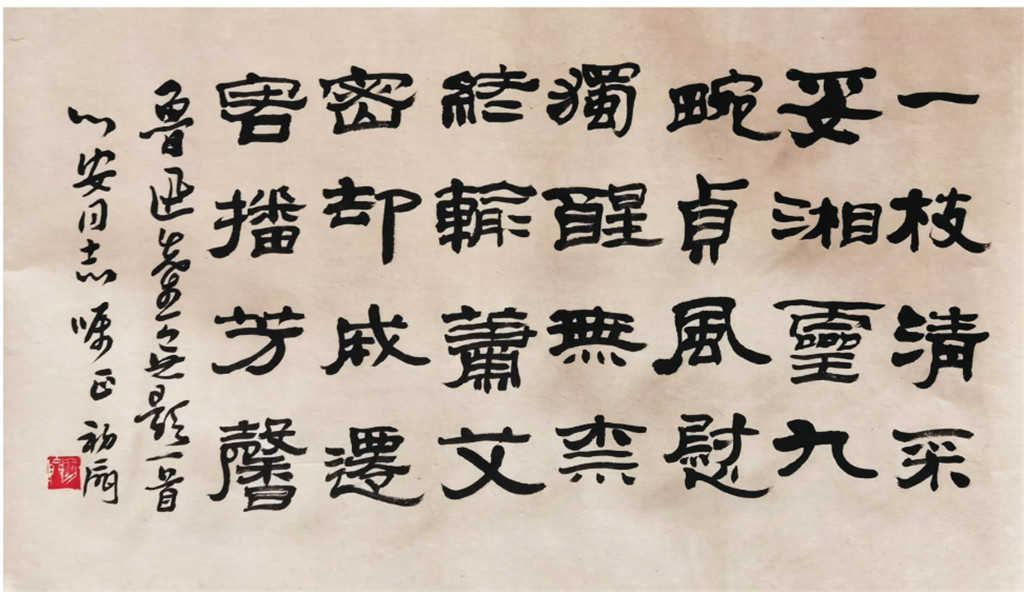 一枝清采
妥湘靈九
畹貞風慰
獨醒無柰
終輸蕭艾
密却成遷
客播芳馨
魯迅先生無題一首
以安同志嘱正